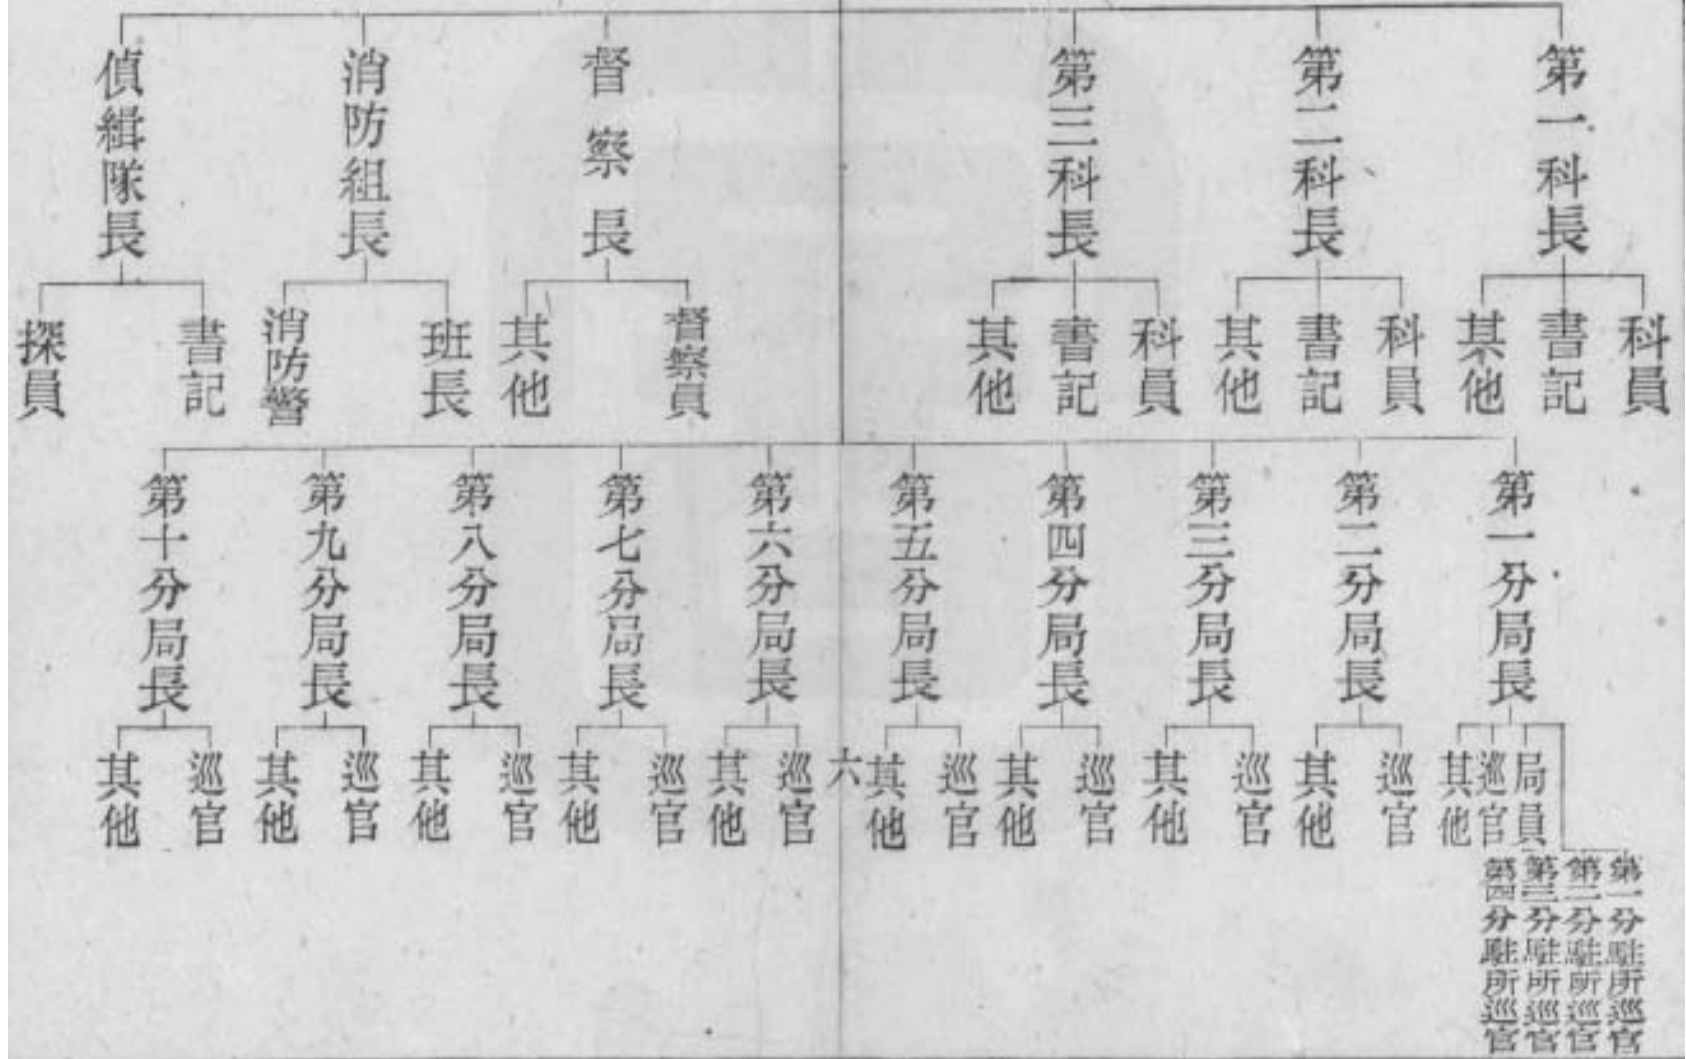 第一科長
科員
書記
其他
第二科長
科員
書記
其他
第三科長
科員
書記
其他
督察長
督察員
其他
消防組長
班長
消防警
偵緝隊長
書記
探員
第一分局長
局員
巡官
其他
第一分駐所巡官
第二分駐所巡官
第三分駐所巡官
第四分駐所巡官
第二分局長
巡官
其他
第三分局長
巡官
其他
第四分局長
巡官
其他
第五分局長
巡官
其他
六
第六分局長
巡官
其他
第七分局長
巡官
其他
第八分局長
巡官
其他
第九分局長
巡官
其他
第十分局長
巡官
其他